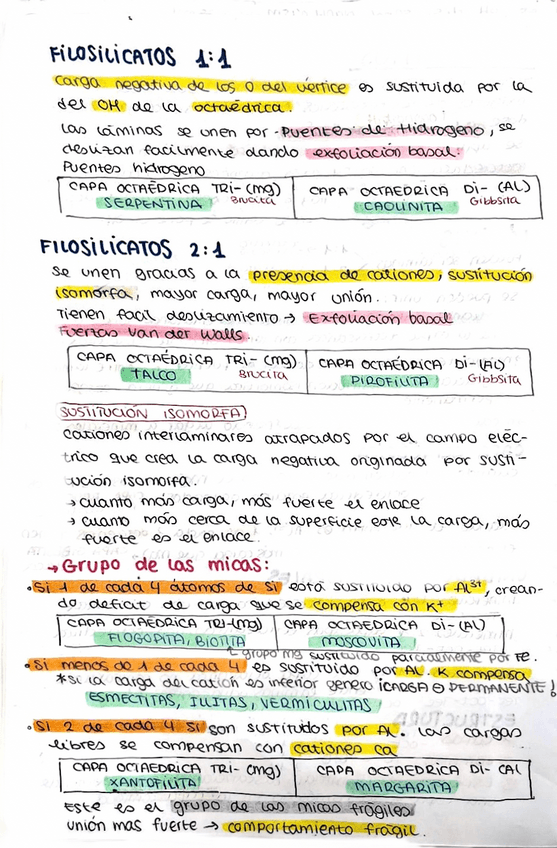 FILOSILICATOS 1:1
Carga negativa de los O del vértice es sustituida por la
del OH de la octaédrica.
Las láminas se unen por Puentes de Hidrogeno, se
deslizan facilmente dando exfoliación basal.
Puentes hidrogeno
CAPA OCTAÉDRICA TRI- (Mg) CAPA OCTAÉDRICA Di- (AL)
SERPENTINA Brucita CAOLINITA Gibbsita
FILOSILICATOS 2:1
Se unen gracias a la presencia de cationes, sustitución
isomorfa, mayor carga, mayor unión.
Tienen facil deslizamiento → Exfoliación basal
Fuerzas Van der Walls.
CAPA OCTAÉDRICA TRI- (Mg) CAPA OCTAÉDRICA Di- (AL)
TALCO Brucita PIROFILITA Gibbsita
SUSTITUCIÓN ISOMORFA)
cationes interlaminares atrapados por el campo eléc-
trico que crea la carga negativa originada por susti-
ución isomorfa.
→ cuanto más carga, más fuerte el enlace
→ cuanto más cerca de la superficie este la carga, más
fuerte es el enlace.
→ Grupo de las micas:
• Si 1 de cada 4 átomos de Si está sustituido por Al3+, crean-
do deficit de carga que se compensa con K+
CAPA OCTAEDRICA TRI-(Mg) CAPA OCTAEDRICA Di- (AL)
FLOGOPITA, BIOTITA MOSCOVITA
grupo Mg sustituido parcialmente por Fe.
• Si menos de 1 de cada 4 es sustituido por AL. K compensa
*Si la carga del cation es inferior genero ¡CARGA ⊖ PERMANENTE!
ESMECTITAS, ILITAS, VERMICULITAS
• Si 2 de cada 4 Si son sustituidos por AL. Las cargas
libres se compensan con cationes Ca
CAPA OCTAEDRICA TRI- (Mg) CAPA OCTAEDRICA Di- (AL
XANTOFILITA MARGARITA
Este es el grupo de las micas frágiles
unión mas fuerte → comportamiento fragil.